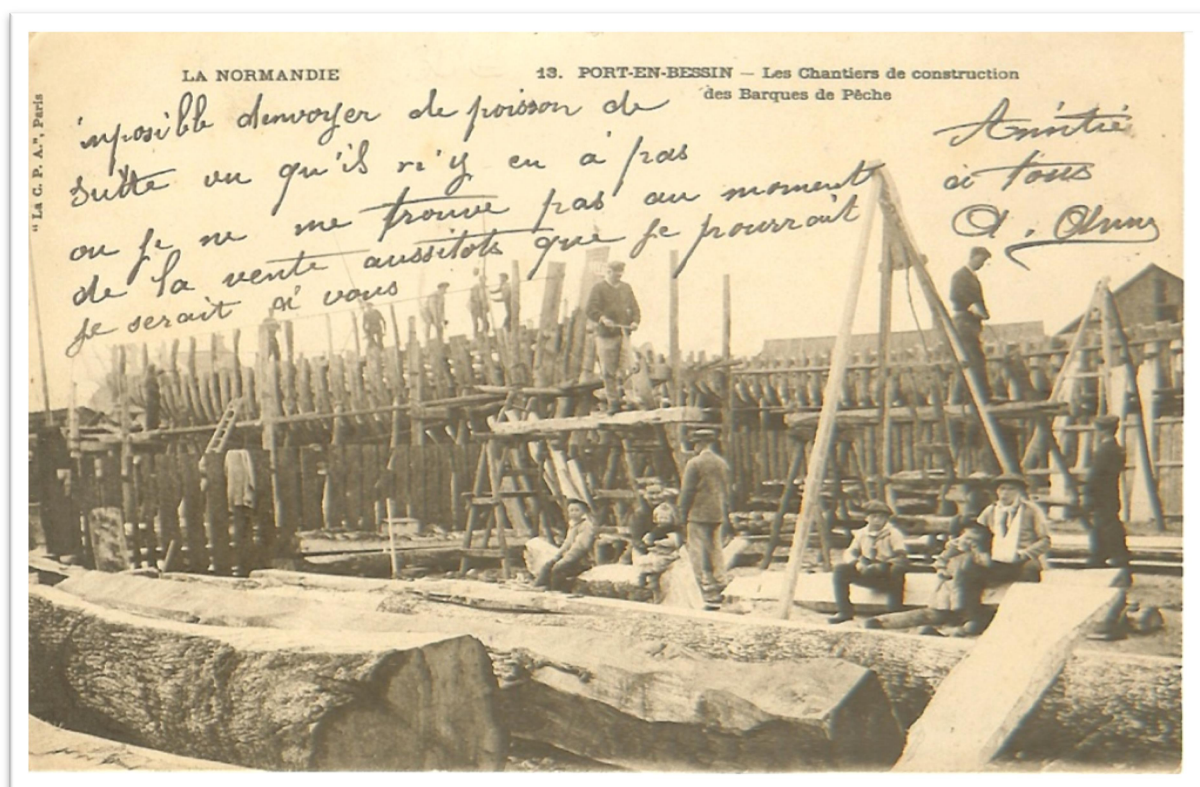 LA NORMANDIE
13. PORT-EN-BESSIN — Les Chantiers de construction
des Barques de Pêche
"La C. P. A.", Paris
imposible d'envoyer de poisson de
suitte vu qu'il n'y en a pas
ou je ne me trouve pas au moment
de la vente aussitots que je pourrait
je serait à vous
Amitié
à tous
A.